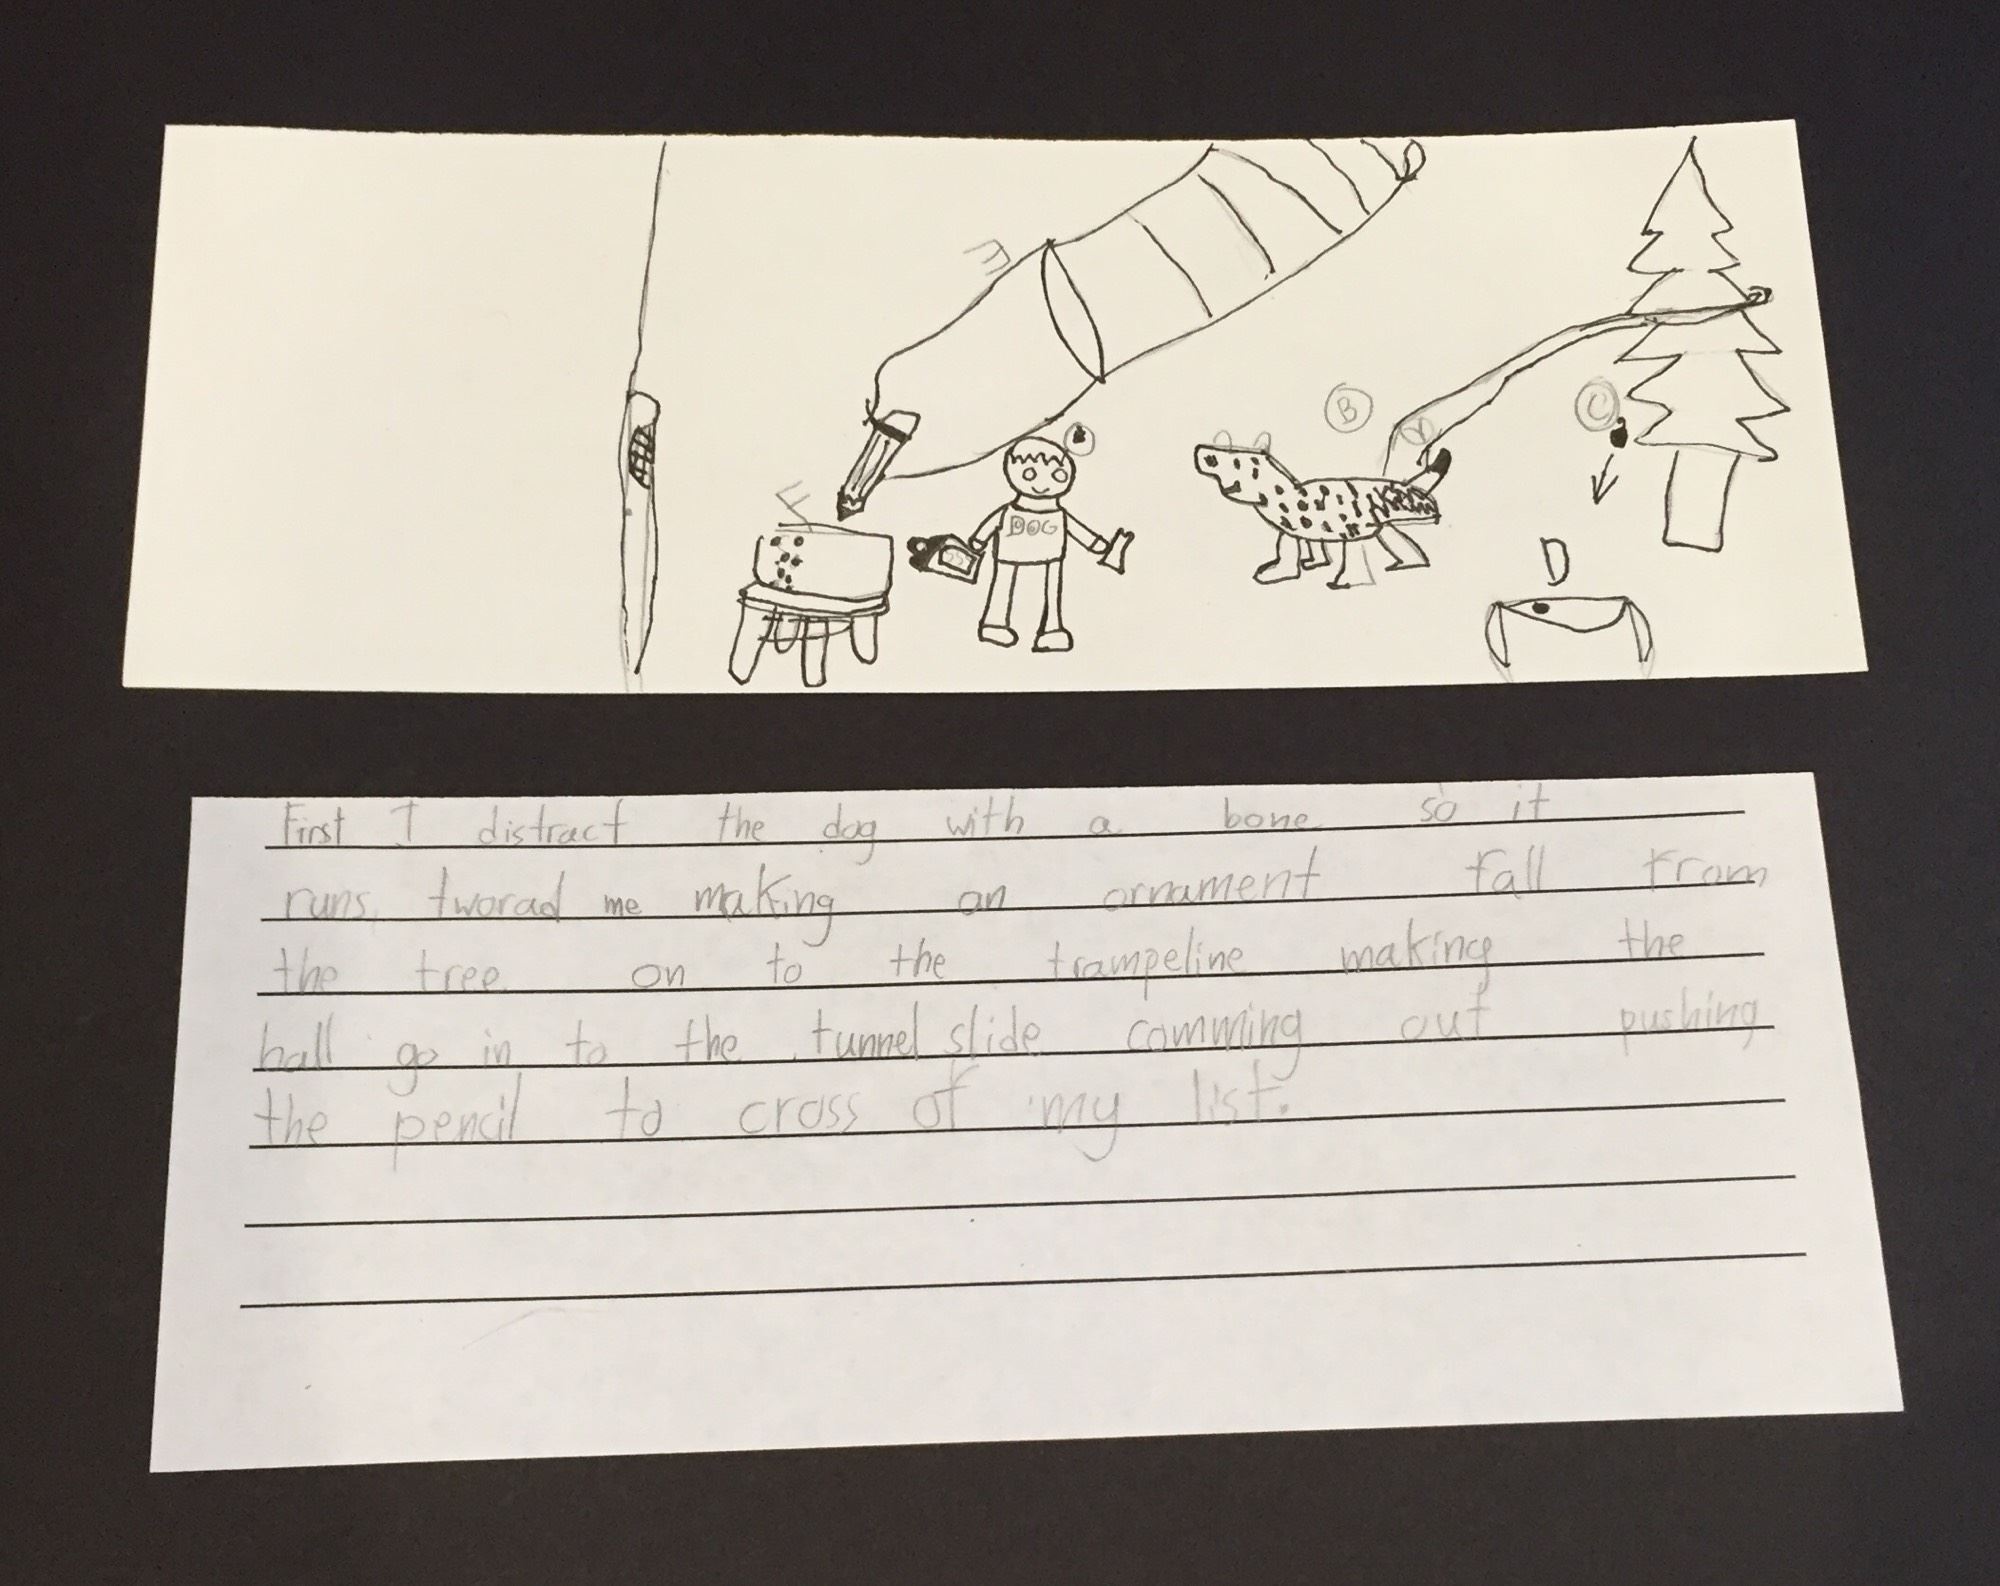 E
B
C
DOG
F
D
First I distract the dog with a bone so it
runs, tworad me making an ornament fall from
the tree on to the trampeline making the
ball go in to the tunnel slide comming out pushing
the pencil to cross of my list.